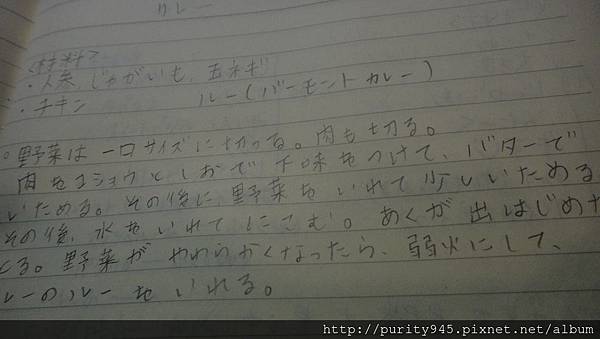 カレー
<材料>
・人参、じゃがいも、玉ネギ
・チキン ルー(バーモントカレー)
○野菜は一口サイズに切っる。肉も切る。
肉をコショウとしおで下味をつけて、バターで
いためる。その後に野菜をいれて少しいためる
その後、水をいれてにこむ。あくが出はじめた
とる。野菜がやわらかくなったら、弱火にして、
レーのルーをいれる。
http://purity945.pixnet.net/album